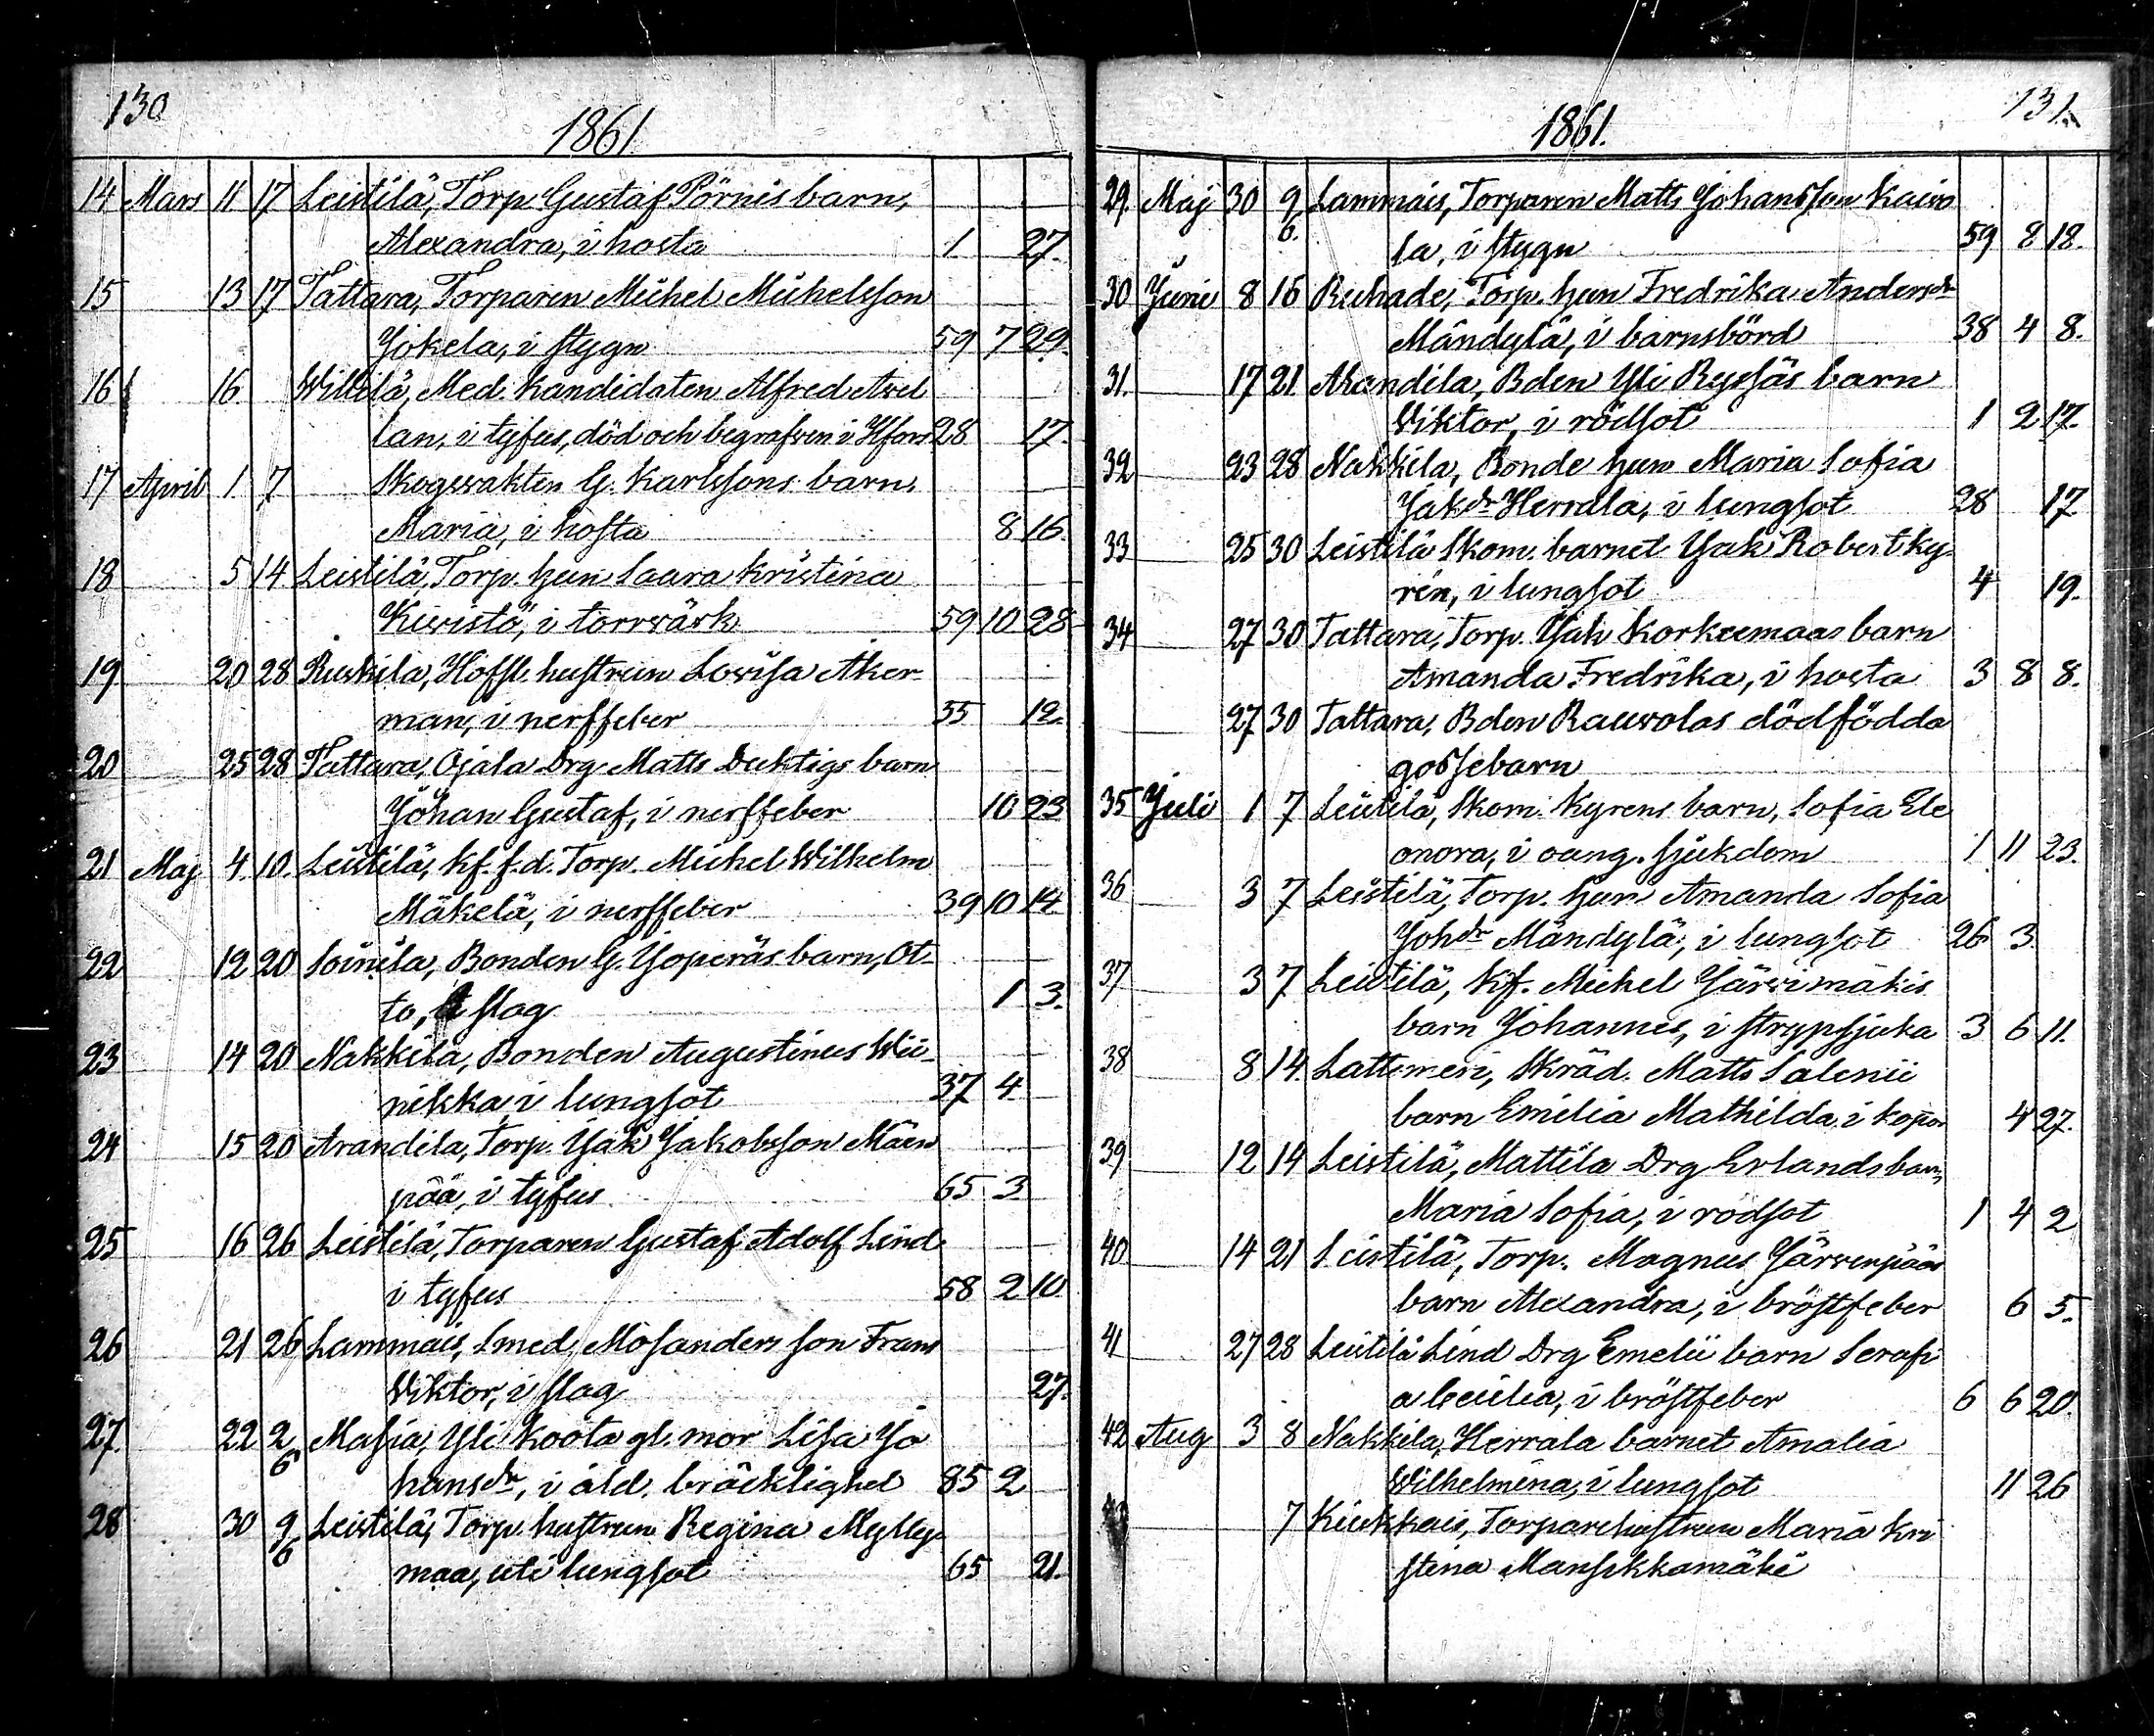 130
1861
14 Mars 11 17 Leistilä, Torp. Gustaf Pörnis barn,
Alexandra, i hosta 1. 27.
15 13 17 Tattara, Torparen Michel Michelsson
Jokela, i stygn 59 7 29.
16 16 Willilä, Med. Kandidaten Alfred Avel
lan, i tyfus, död och begrafven i Hfors 28 17.
17 April 1 7 Skogsvakten G. Karlssons barn,
Maria, i hosta 8 16.
18 5 14 Leistilä, Torp. hun Saara Kristina
Kivistö, i torrvärk 59 10 28
19 20 28 Ruskila, Hofsl. hustrun Lovisa Åker
man, i nerffeber 55 12.
20 25 28 Tattara, Ojala Drg Matts Duktigs barn
Johan Gustaf, i nerffeber 10 23
21 Maj 4. 10. Leistilä, kf. f.d. Torp. Michel Wilhelm
Mäkelä, i nerffeber 39 10 14.
22 12 20 Soinila, Bonden G. Joperäs barn, Ot-
to, slag 1 3.
23 14 20 Nakkila, Bonden Augustinus Wii-
nikka, i lungsot 37 4
24 15 20 Arandila, Torp. Jak Jakobsson Mäen
pää, i tyfus 65 3
25 16 26 Leistilä, Torparen Gustaf Adolf Lind
i tyfus 58 2 10.
26 21 26 Lammais, Smed Mosanders son Frans
Viktor, i slag 27.
27. 22 2/6 Masia, Yli Koota gl. mor Lisa Jo
hansdr, i åld. bräcklighet 85 2
28 30 9/6 Leistilä, Torp. hustrun Regina Mylly-
maa, uti lungsot 65 21.
131.
1861.
29. Maj 30 9/6. Lammais, Torparen Matts Johansson Kaivo
la, i stygn 59 8 18.
30 Juni 8 16 Ruhade, Torp. hun Fredrika Andersdr
Mändylä, i barnsbörd 38 4 8.
31. 17 21 Arandila, Bden Yli Ryssäs barn
Viktor, i rödsot 1 2 17.
32 23 28 Nakkila, Bonde hun Maria Sofia
Jakdr Herrala, i lungsot 28 17
33 25 30 Leistilä Skom. barnet Jak Robert Ky-
rén, i lungsot 4 19.
34 27 30 Tattara, Torp. Jak Korkeemaas barn
Amanda Fredrika, i hosta 3 8 8.
27 30 Tattara, Bden Rauvolas dödfödda
gossebarn
35 Juli 1 7 Leistilä, Skom. Kyrens barn, Sofia Ele
onora, i oang. sjukdom 1 11 23.
36 3 7 Leistilä, Torp. hun Amanda Sofia
Johdr Mändylä, i lungsot 26 3.
37 3 7 Leistilä, Kf. Michel Järvimäkis
barn Johannes, i strypsjuka 3 6 11.
38 8 14. Lattomeri, Skräd. Matts Salenii
barn Emilia Mathilda, i kopor 4 27.
39 12 14 Leistilä, Mattila Drg Erlands barn,
Maria Sofia, i rödsot 1 4 2
40 14 21 Leistilä, Torp. Magnus Järvenpääs
barn Alexandra, i bröstfeber 6 5.
41 27 28 Leistilä Lind Drg Emelii barn Serafi
a Cecilia, i bröstfeber 6 6 20.
42 Aug 3 8 Nakkila, Herrala barnet Amalia
Wilhelmina, i lungsot 11 26
43 7 Kiukkais, Torparehustrun Maria Kri
stina Mansikkamäki